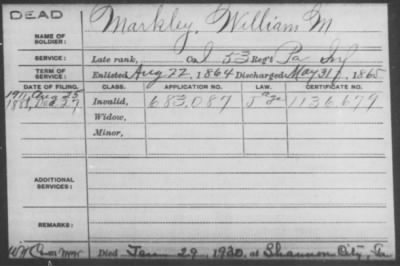 DEAD
NAME OF SOLDIER: Markley, William M
SERVICE: Late rank, Co. I 53 Reg't Pa Inf
TERM OF SERVICE: Enlisted Aug 22, 1864 Discharged May 31, 1865
DATE OF FILING. CLASS. APPLICATION NO. LAW. CERTIFICATE NO.
1911, Aug 25
1888, Dec 27 Invalid, 683.087 1136.679
Widow,
Minor,
ADDITIONAL SERVICES:
REMARKS:
Died Jan 29, 1930, at Shannon City, Ia